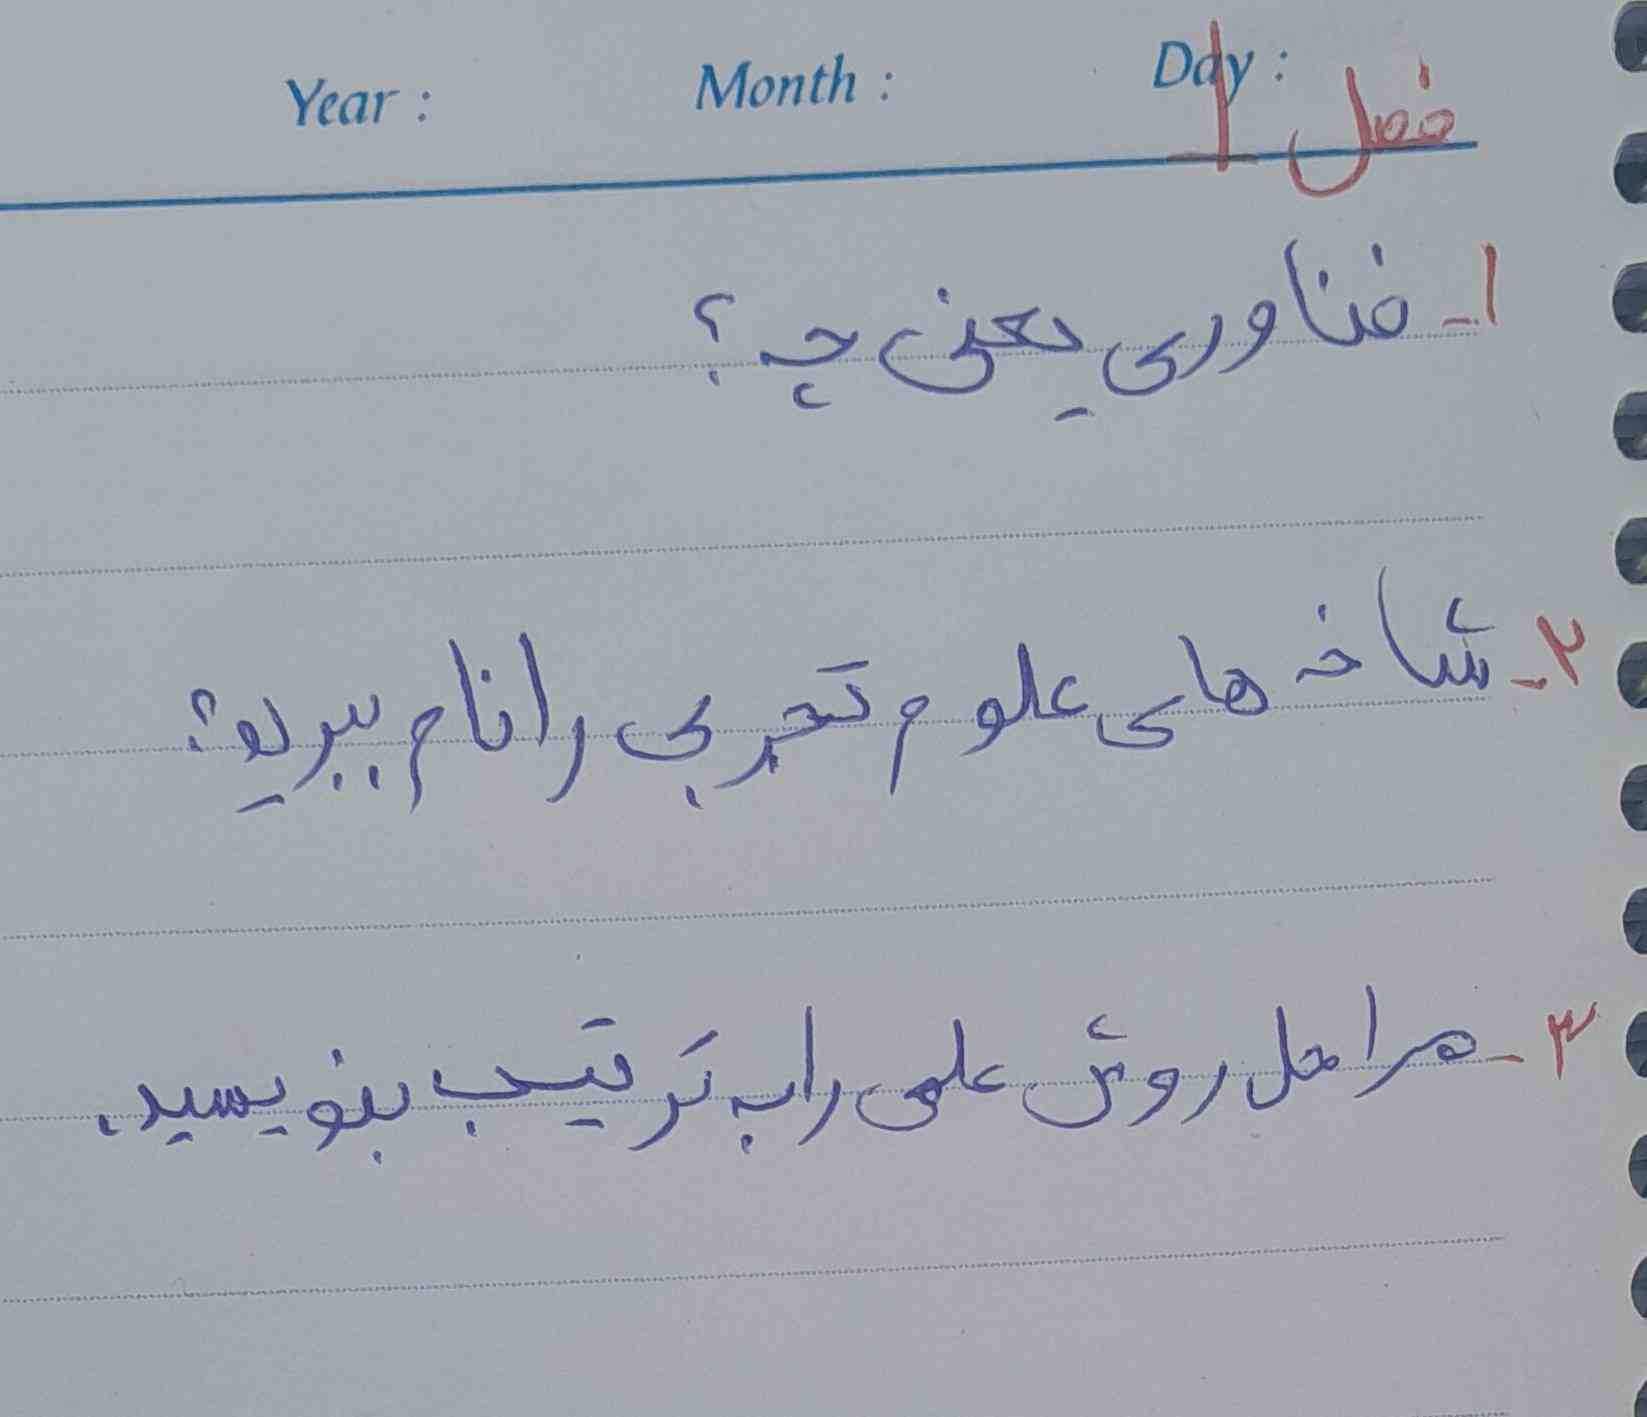 Year : Month : Day :
فصل ۱
۱- فناوری یعنی چه ؟
۲- شاخه های علوم تجربی را نام ببرید؟
۳- مراحل روش علمی را به ترتیب بنویسید.